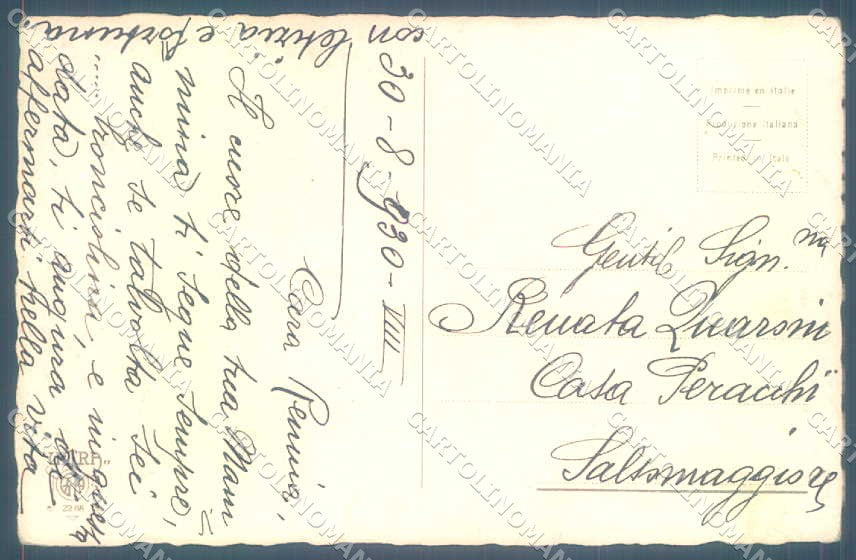 30-8-930-VIII
Cara Renina,
Il cuore della tua Mam
mina ti segue sempre,
anche se talvolta sei
bronciolina e in questa
data, ti augura di
affermarti nella vita
con letizia e fortuna.
Imprimé en Italie
Produzione Italiana
Printed in Italy
Gentil Sign.na
Renata
Casa Peracchi
Salsomaggiore
2268
CARTOLINOMANIA